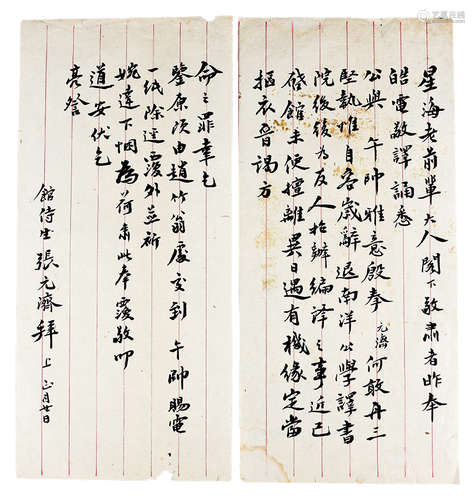 星海老前輩大人閣下敬肅者昨奉
皓電敬譯誦悉
公與 午帥雅意殷拳 元濟 何敢再三
堅執惟自客歲辭退南洋公學譯書
院後後為友人招辦編譯之事近已
啟館未便擅離異日遇有機緣定當
摳衣晉謁方
命之罪幸乞
鑒原頃由趙竹翁處交到 午帥賜電
一紙除逕覆外並祈
婉達下悃為荷肅此奉覆敬叩
道安伏乞
亮詧
館侍生張元濟拜上 正月廿日